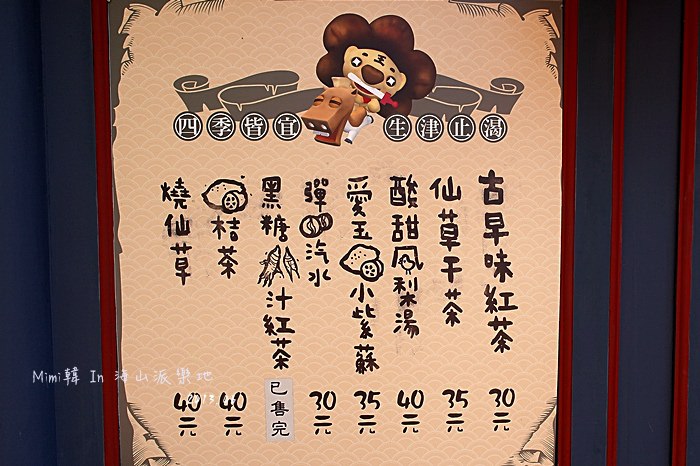 四季皆宜 生津止渴
古早味紅茶 30元
仙草干茶 35元
酸甜鳳梨湯 40元
愛玉小紫蘇 35元
彈汽水 30元
黑糖汁紅茶 已售完
桔茶 40元
燒仙草 40元
王
Mimi韓 In 海山派樂地